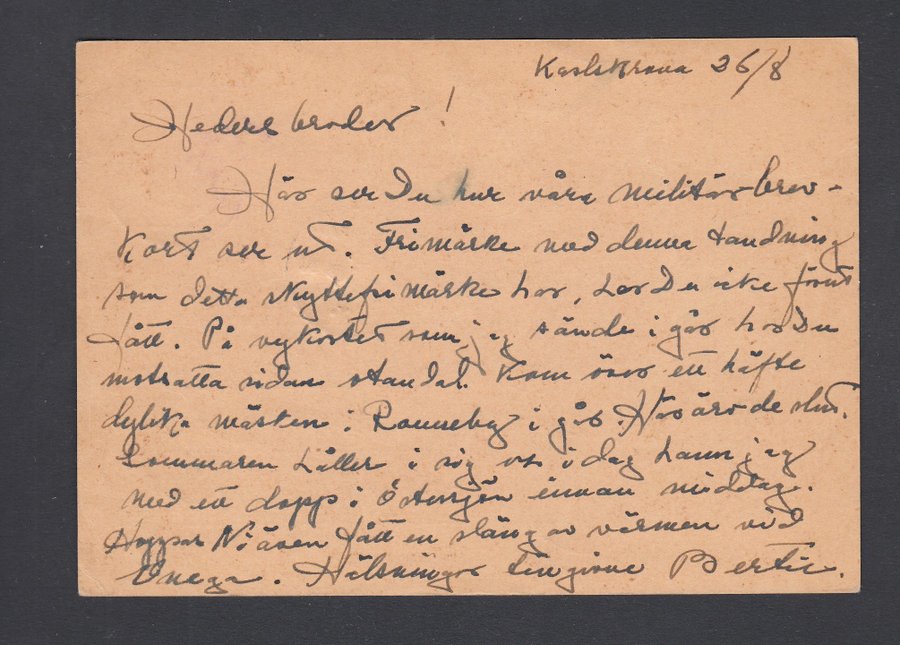 Karlskrona 26/8
Hedersbroder!
Här ser Du hur våra militärbrev-
kort ser ut. Frimärke med denna tandning
som detta nyttofrimärke har, har Du icke förut
fått. På vykortet som jag sände i går har Du
motsatta sidan otandad. Kom över ett häfte
dylika märken i Ronneby i går. Här är de slut.
Sommaren håller i sig o i dag hann jag
med ett dopp i Östersjön innan middag.
Hoppas Ni även fått en släng av värmen vid
Onega. Hälsningar Tillgivne Bertil.